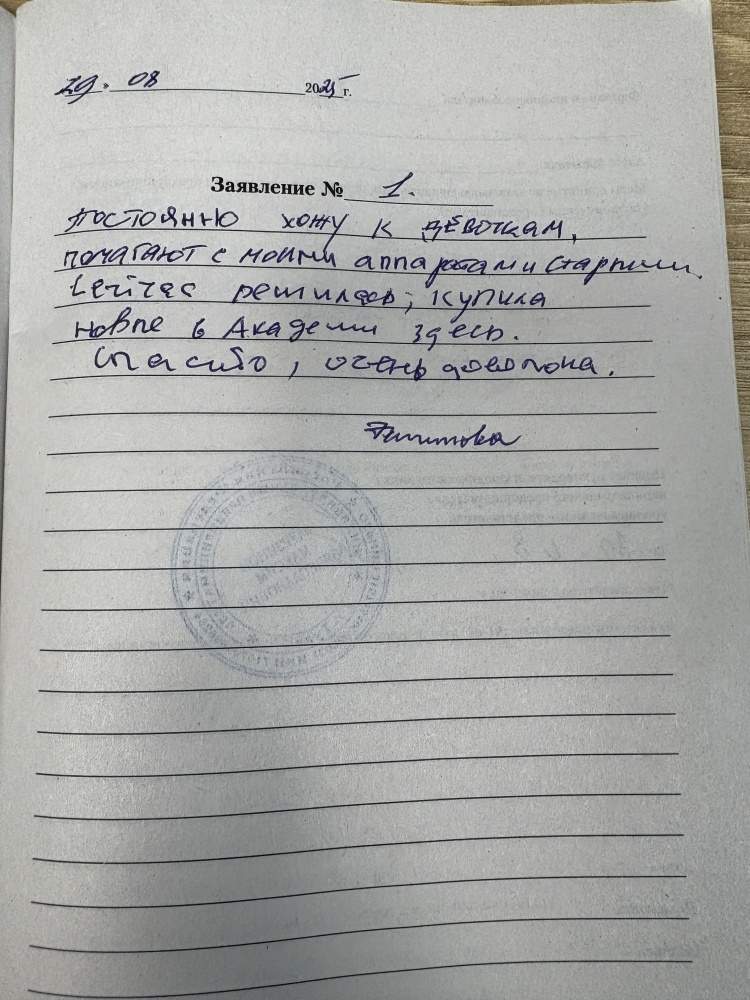 29 » 08 2025 г.
Заявление № 1.
Постоянно хожу к девочкам,
помогают с моими аппаратами старыми.
Сейчас решилась, купила
новые в Академии здесь.
Спасибо, очень довольна.